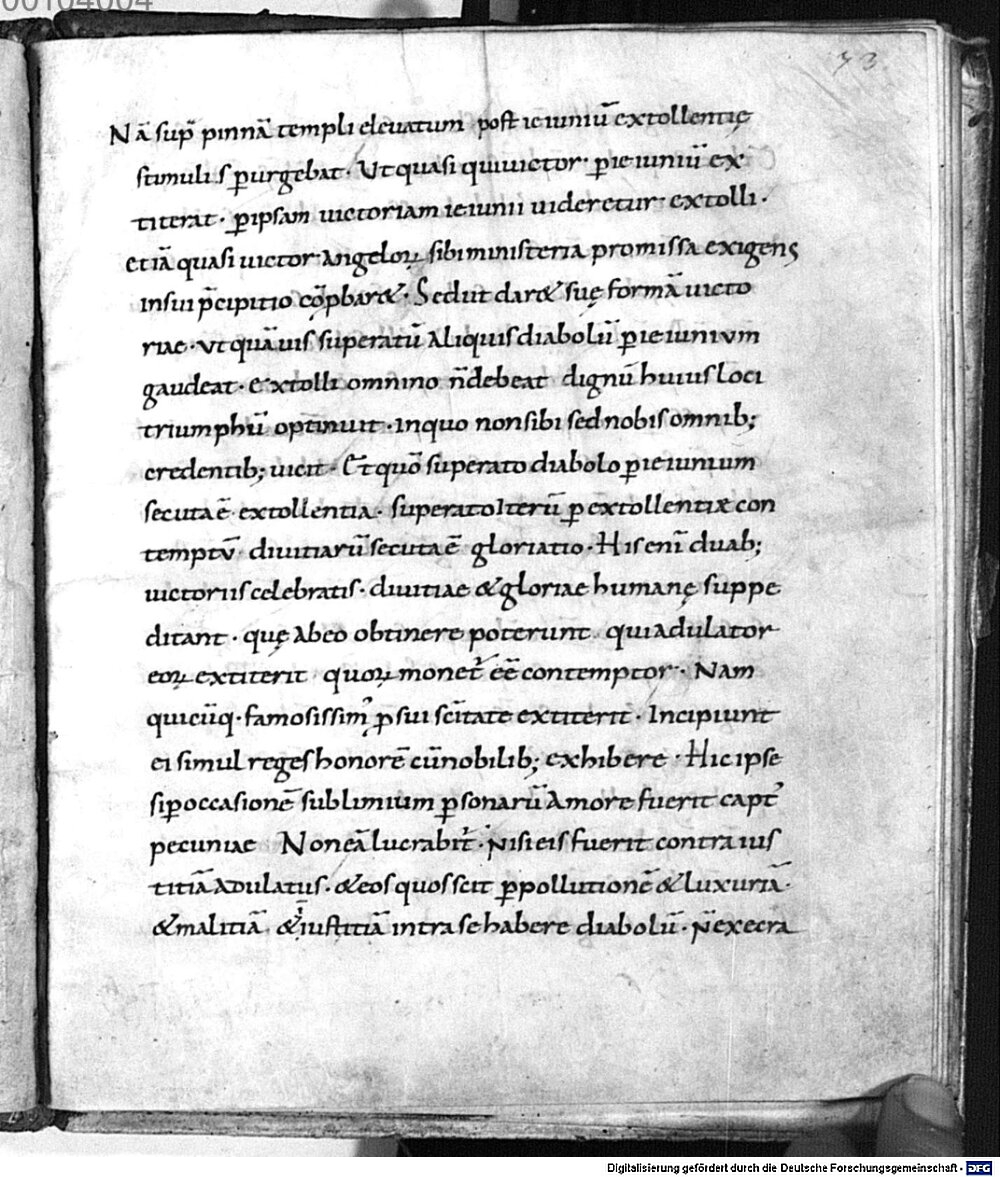 00104004
73
Nā sup̄ pinnā templi eleuatum · post ieiuniū extollentię
stimuli s ꝑurgebat · Ut quasi qui uictor · ꝑ ieiuniū ex
titerat · ꝑ ipsam uictoriam ieiunii uideretur extolli ·
et iā quasi uictor Angeloꝝ sibi ministeria promissa exigens
in sui p̄cipitio cōpbar& · Sed ut dar& suę formā uicto
riae · ut quāuis superatū Aliquis diabolū ꝑ ieiunium
gaudeat · Extolli omnino n̄ debeat dignū huius loci
triumphū optinuit · In quo non sibi sed nobis omnib;
credentib; uicit · Et quō superato diabolo ꝑ ieiunium
secuta ē extollentia · superato Iterū ꝑ extollentiæ con
temptū diuitiarū secuta ē gloriatio · His eni duab;
uictoriis celebratis · diuitiae & gloriae humanę suppe
ditant · quę Ab eo obtinere poterunt qui adulator
eoꝝ extiterit quoꝝ monet᷑ eē contemptor · Nam
quicūq · famosissimꝰ ꝓ sui sc̄itate extiterit · Incipiunt
ei simul reges honorē cū nobilib; exhibere · Hic ipse
si ꝑ occasionē sublimium ꝑsonarū Amore fuerit captꝰ
pecuniae Non eā lucrabit᷑ · Nisi eis fuerit contra ius
titiā Adulatus · & eos quos scit ꝑ pollutionē & luxuriā ·
& malitiā · & iniustitiā intra se habere diabolū · N̄ execra
Digitalisierung gefördert durch die Deutsche Forschungsgemeinschaft - DFG